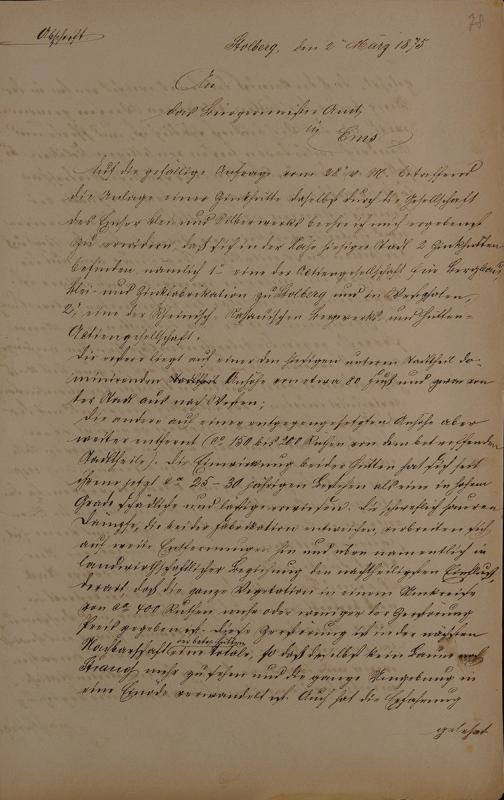 78
Abschrift
Stolberg, den 2ten März 1875
An
das Bürgermeister Amt
in
Ems
Auf die gefällige Anfrage vom 28. v. M. betreffend
die Anlage einer Zinkhütte daselbst durch die Gesellschaft
des Emser Blei und Silberwerks beehre ich mich ergebenst
zu erwidern, daß sich in der Nähe hiesiger Stadt 2 Zinkhütten
befinden, nämlich 1. eine der Actiengesellschaft für Bergbau,
Blei- und Zinkfabrikation zu Stolberg und in Westphalen,
2. eine der Rheinisch-Nassauischen Bergwerks- und Hütten-
Actiengesellschaft.
Die erstere liegt auf einer den hiesigen unteren Stadttheil do-
minirenden Anhöhe von etwa 80 Fuß und zwar von
der Stadt aus nach Westen;
die andere auf einer entgegengesetzten Anhöhe aber
weiter entfernt (ca. 150 bis 200 Ruthen von dem betreffenden
Stadttheile). Die Einwirkung beider Hütten hat sich seit
ihrem jetzt ca. 25-30 jährigen Bestehen als eine in hohem
Grade schädliche und lästige erwiesen. Die schweflich sauren
Dämpfe, die bei der Fabrikation entweichen, verbreiten sich
auf weite Entfernungen hin und üben namentlich in
landwirthschaftlicher Beziehung den nachtheiligsten Einfluß,
derart, daß die ganze Vegetation in einem Umkreise
von ca. 400 Ruthen mehr oder weniger der Zerstörung
Preis gegeben ist. Diese Zerstörung ist in der nächsten
Nachbarschaft beider Hütten eine totale, so daß daselbst kein Baum noch
Strauch mehr zu sehen und die ganze Umgebung in
eine Einöde verwandelt ist. Auch hat die Erfahrung
gelehrt